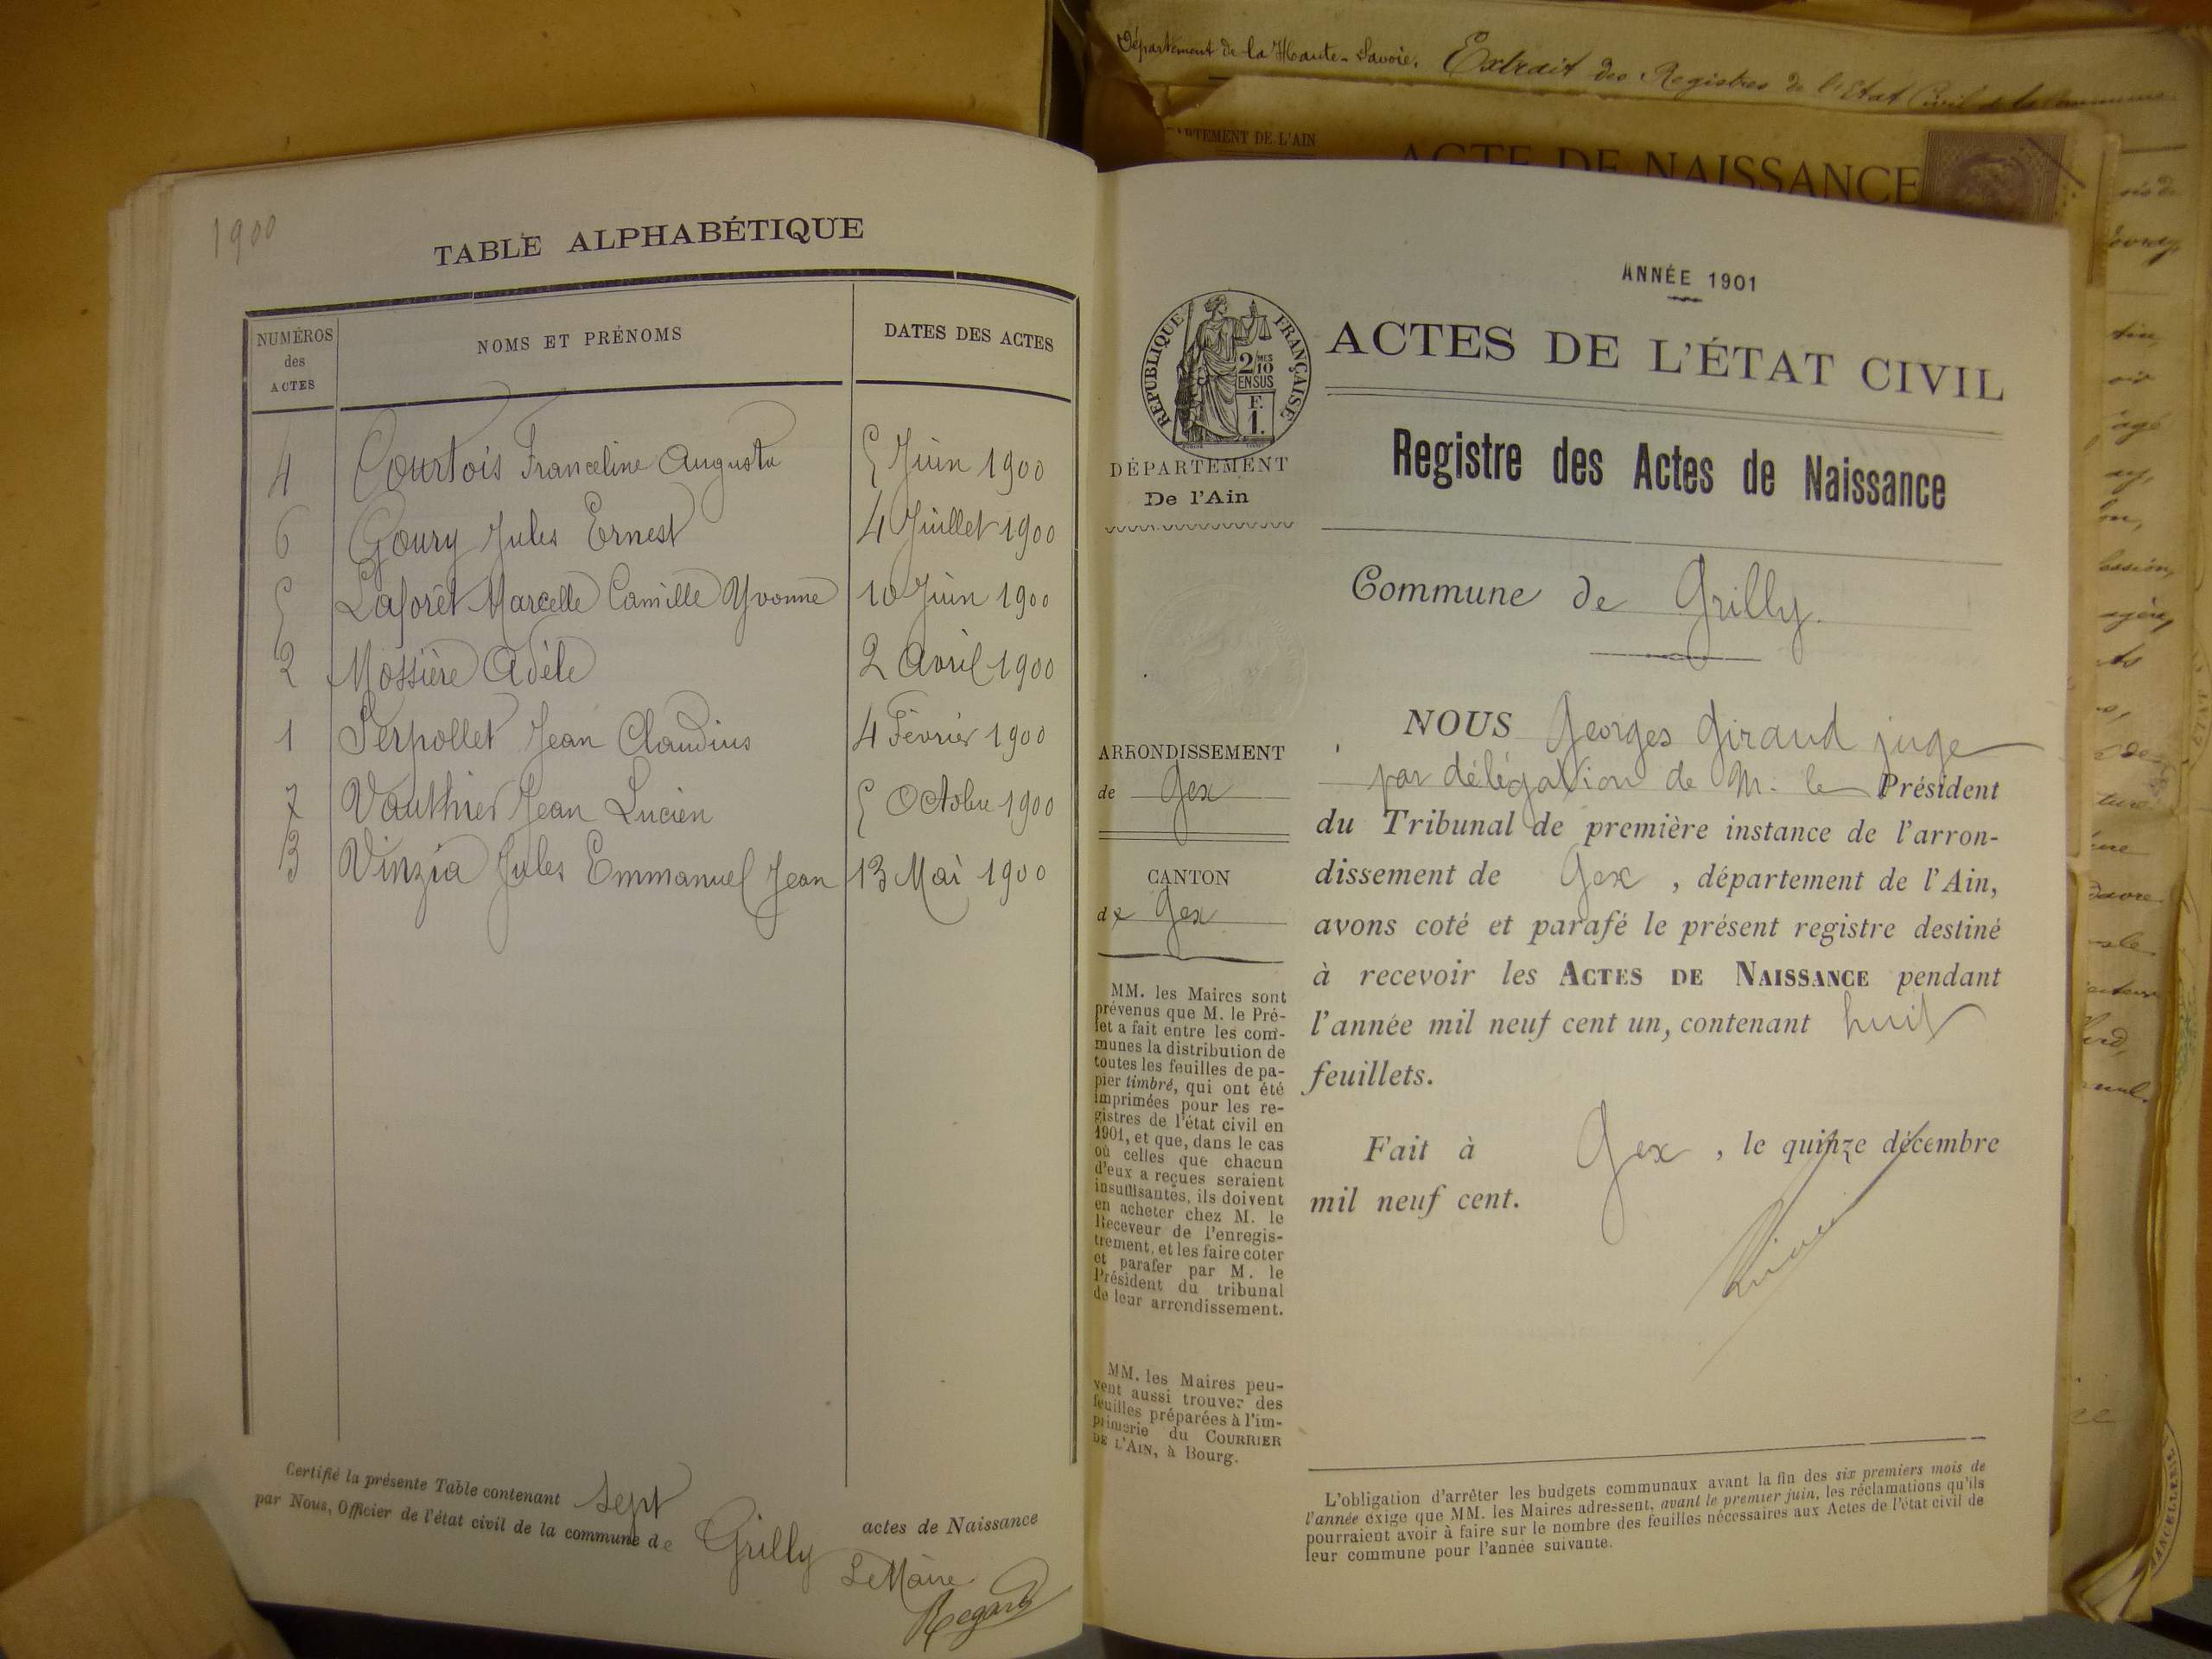 1900
TABLE ALPHABÉTIQUE
NUMÉROS des ACTES
NOMS ET PRÉNOMS
DATES DES ACTES
4 Courtois Franceline Augusta 5 Juin 1900
6 Goury Jules Ernest 4 Juillet 1900
5 Laforêt Marcelle Camille Yvonne 10 Juin 1900
2 Mossière Adèle 2 Avril 1900
1 Serpollet Jean Claudius 4 Février 1900
7 Vauthier Jean Lucien 5 Octobre 1900
3 Vinzia Jules Emmanuel Jean 13 Mai 1900
Certifié la présente Table contenant sept actes de Naissance
par Nous, Officier de l'état civil de la commune de Grilly
Le Maire
Regard
Département de la Haute-Savoie. Extrait des Registres de l'Etat Civil de la Commune
PARTEMENT DE L'AIN
ACTE DE NAISSANCE
ANNÉE 1901
RÉPUBLIQUE FRANÇAISE
2/10 MES
EN SUS
F.
1.
ACTES DE L'ÉTAT CIVIL
Registre des Actes de Naissance
DÉPARTEMENT
De l'Ain
Commune de Grilly.
ARRONDISSEMENT
de Gex
CANTON
de Gex
MM. les Maires sont
prévenus que M. le Pré-
fet a fait entre les com-
munes la distribution de
toutes les feuilles de pa-
pier timbré, qui ont été
imprimées pour les re-
gistres de l'état civil en
1901, et que, dans le cas
où celles que chacun
d'eux a reçues seraient
insuffisantes, ils doivent
en acheter chez M. le
Receveur de l'enregis-
trement, et les faire coter
et parafer par M. le
Président du tribunal
de leur arrondissement.
MM. les Maires peu-
vent aussi trouver des
feuilles préparées à l'im-
primerie du COURRIER
DE L'AIN, à Bourg.
NOUS Georges Giraud juge
par délégation de M. le Président
du Tribunal de première instance de l'arron-
dissement de Gex, département de l'Ain,
avons coté et parafé le présent registre destiné
à recevoir les ACTES DE NAISSANCE pendant
l'année mil neuf cent un, contenant huit
feuillets.
Fait à Gex, le quinze décembre
mil neuf cent.
L'obligation d'arrêter les budgets communaux avant la fin des six premiers mois de
l'année exige que MM. les Maires adressent, avant le premier juin, les réclamations qu'ils
pourraient avoir à faire sur le nombre des feuilles nécessaires aux Actes de l'état civil de
leur commune pour l'année suivante.